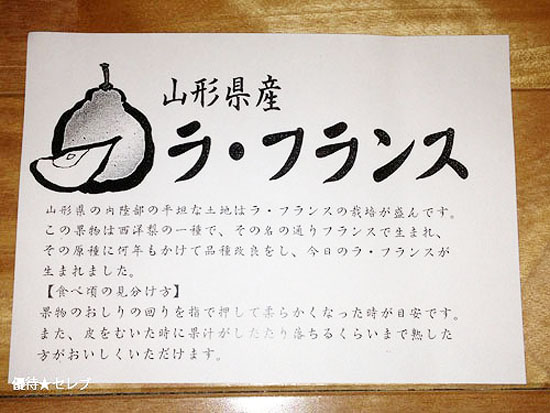 山形県産
ラ・フランス
山形県の内陸部の平坦な土地はラ・フランスの栽培が盛んです。
この果物は西洋梨の一種で、その名の通りフランスで生まれ、
その原種に何年もかけて品種改良をし、今日のラ・フランスが
生まれました。
【食べ頃の見分け方】
果物のおしりの回りを指で押して柔らかくなった時が目安です。
また、皮をむいた時に果汁がしたたり落ちるくらいまで熟した
方がおいしくいただけます。
優待★セレブ